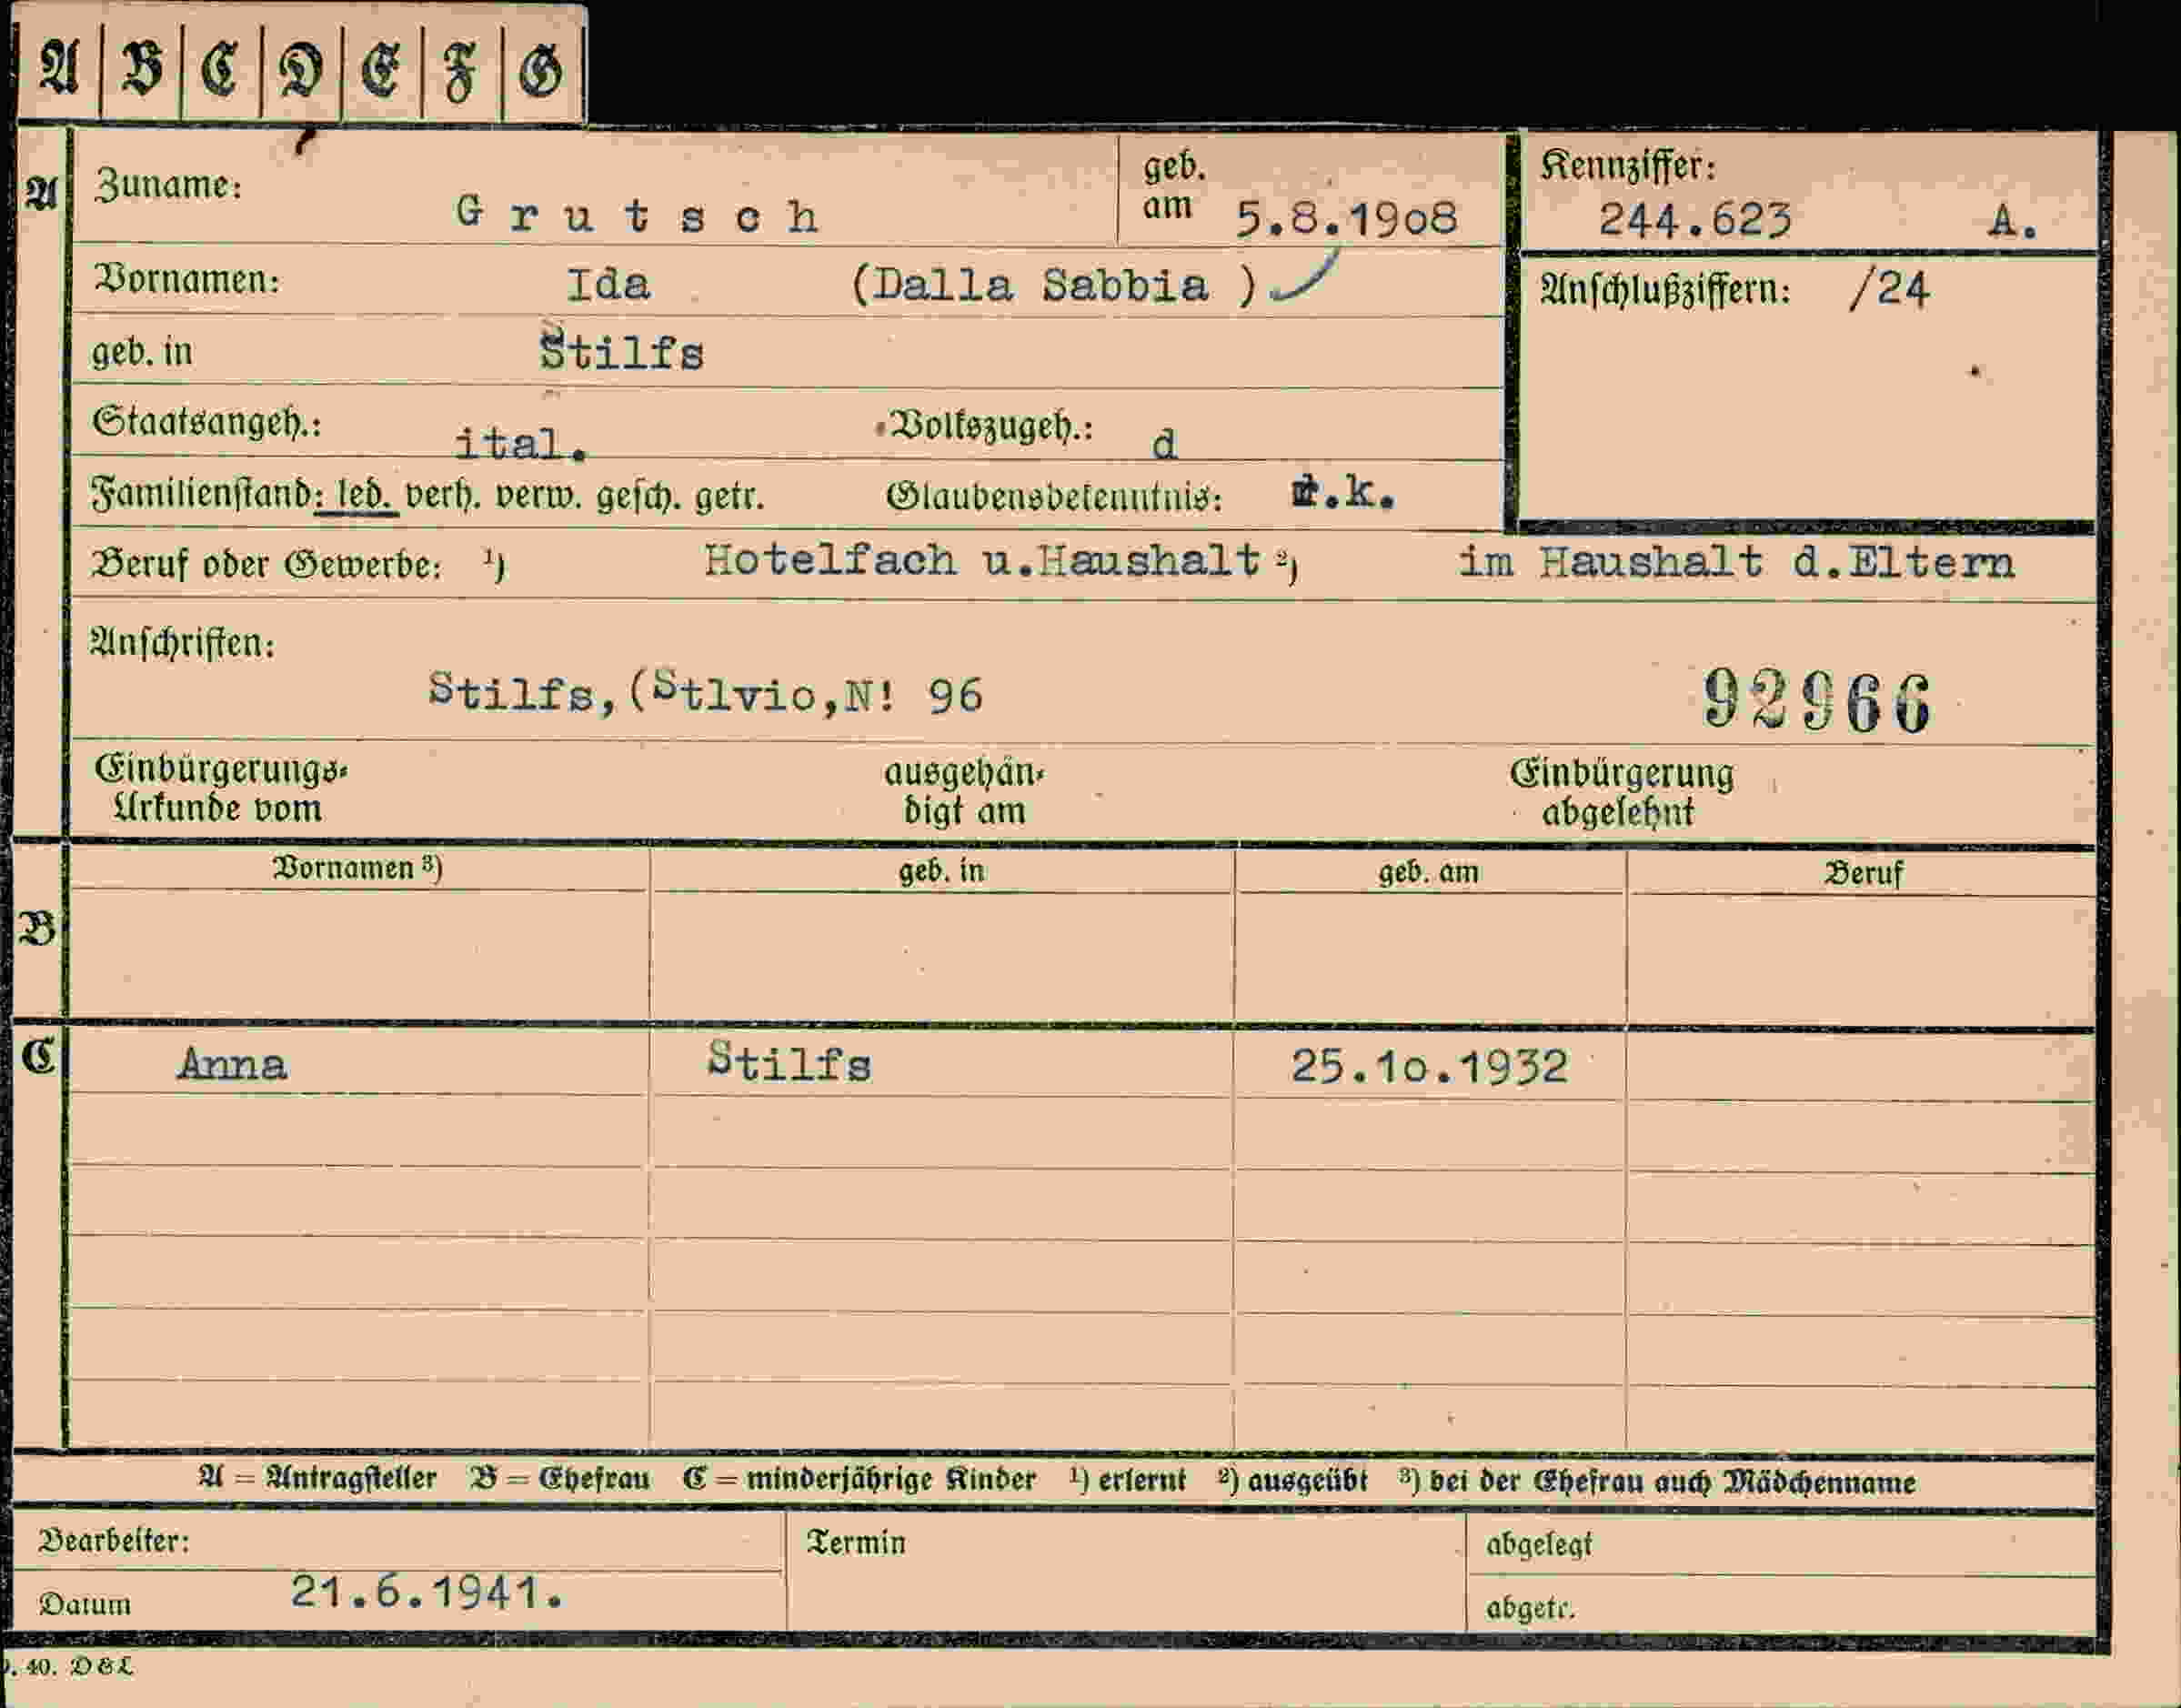 A B C D E F G
A Zuname: Grutsch geb. am 5.8.1908 Kennziffer: 244.623 A.
Vornamen: Ida (Dalla Sabbia ) Anschlußziffern: /24
geb. in Stilfs
Staatsangeh.: ital. Volkszugeh.: d
Familienstand: led. verh. verw. gesch. getr. Glaubensbekenntnis: r.k.
Beruf oder Gewerbe: ¹) Hotelfach u.Haushalt ²) im Haushalt d.Eltern
Anschriften:
Stilfs,(Stlvio,N! 96 92966
Einbürgerungs- ausgehän- Einbürgerung
Urkunde vom digt am abgelehnt
Vornamen ³) geb. in geb. am Beruf
B
C Anna Stilfs 25.10.1932
A = Antragsteller B = Ehefrau C = minderjährige Kinder ¹) erlernt ²) ausgeübt ³) bei der Ehefrau auch Mädchenname
Bearbeiter: Termin abgelegt
Datum 21.6.1941. abgetr.
40. D&L